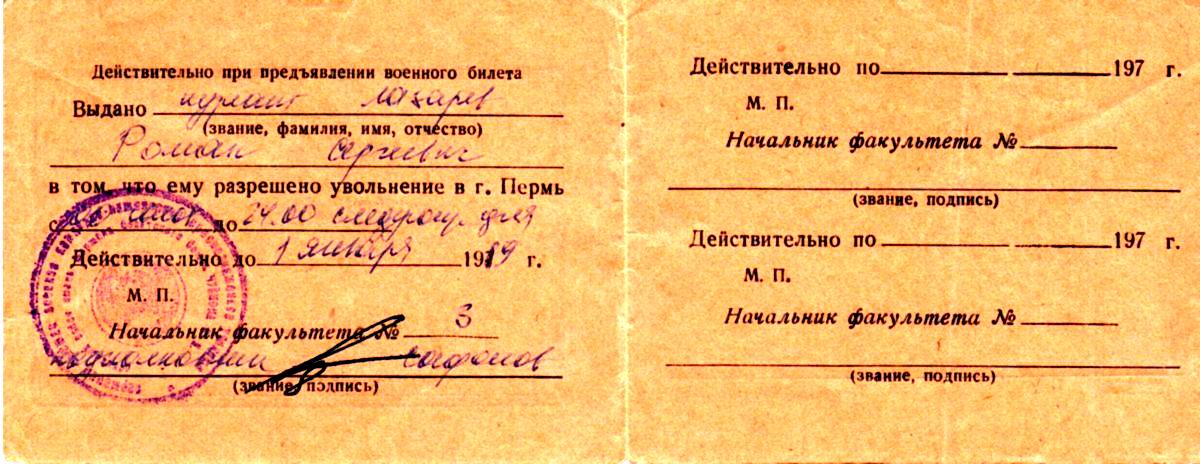 Действительно при предъявлении военного билета
Выдано курсант Лазарев
(звание, фамилия, имя, отчество)
Роман Сергеевич
в том, что ему разрешено увольнение в г. Пермь
с до 24.00 следующ. дня
Действительно до 1 января 1989 г.
М. П.
Начальник факультета № 3
подполковник Сафонов
(звание, подпись)
Действительно по 197 г.
М. П.
Начальник факультета №
(звание, подпись)
Действительно по 197 г.
М. П.
Начальник факультета №
(звание, подпись)